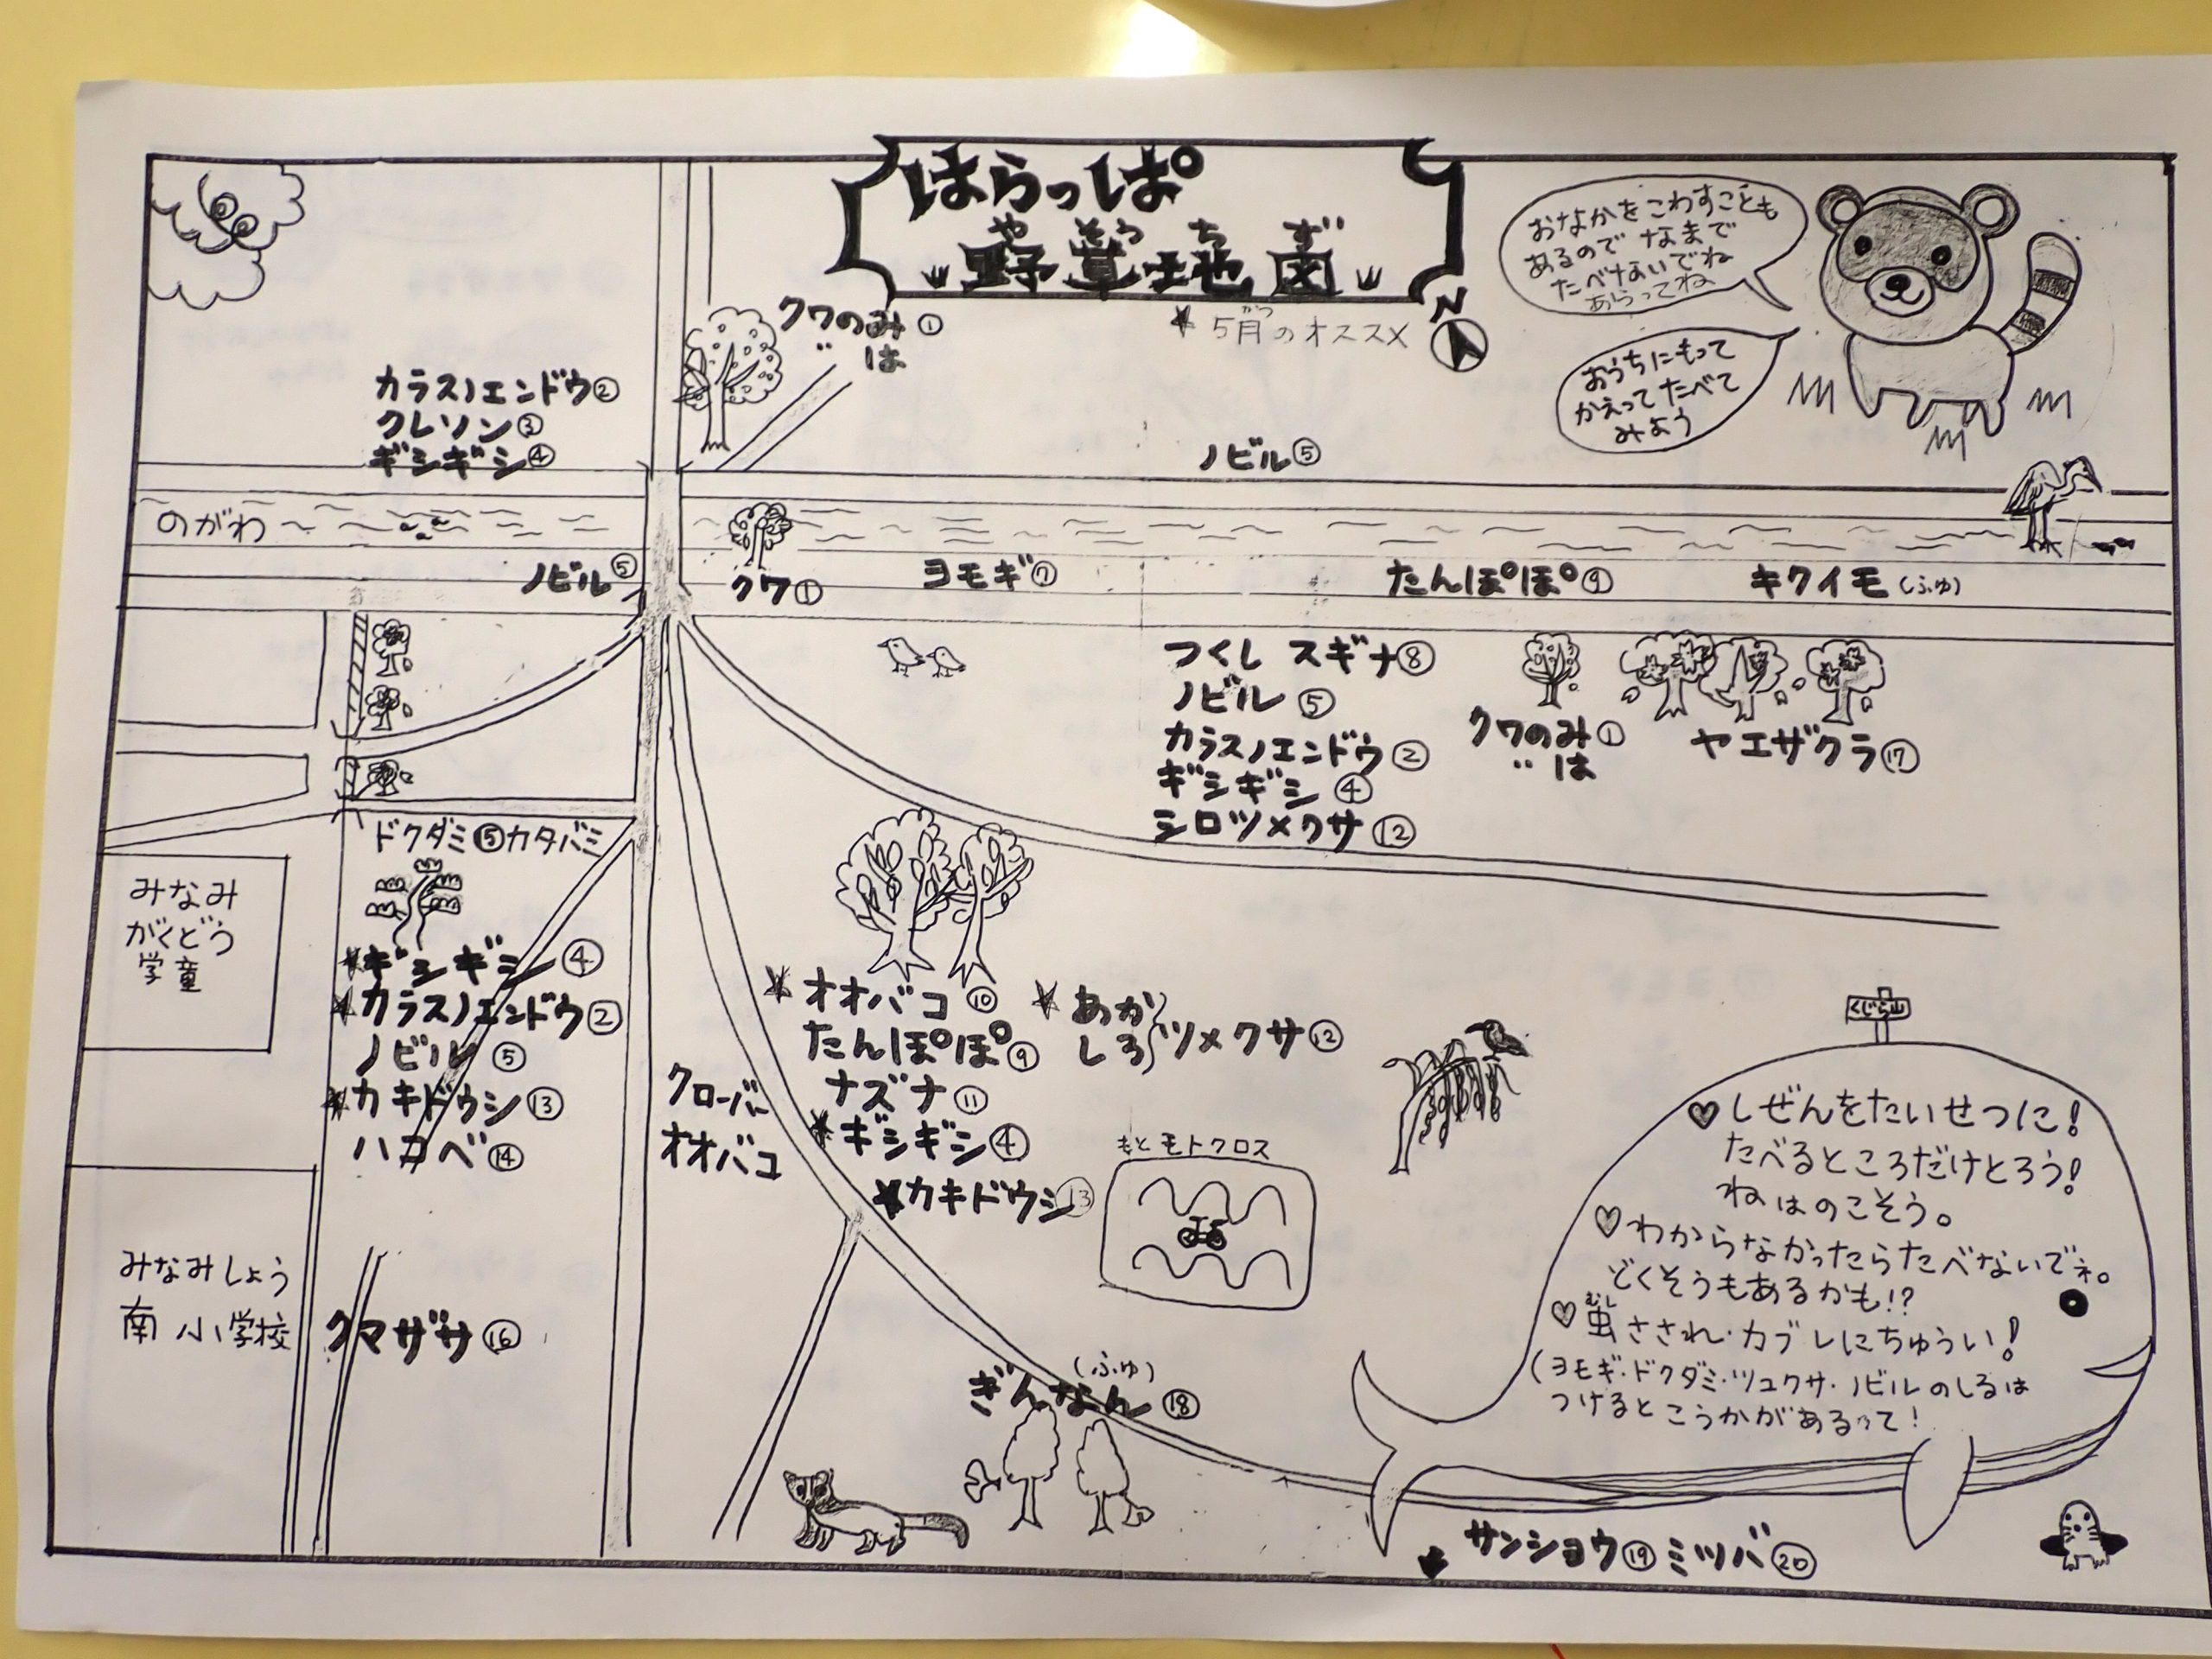 はらっぱ
やそうちず
野草地図
★5月のオススメ
がつ
N
おなかをこわすことも
あるので なまで
たべないでね
あらってね
おうちにもって
かえって たべて
みよう
クワのみ①
〃 は
カラスノエンドウ②
クレソン③
ギシギシ④
ノビル⑤
のがわ
ノビル⑤
クワ①
ヨモギ⑦
たんぽぽ⑨
キクイモ(ふゆ)
つくし スギナ⑧
ノビル⑤
カラスノエンドウ②
ギシギシ④
シロツメクサ⑫
クワのみ①
〃 は
ヤエザクラ⑰
ドクダミ⑮カタバミ
みなみ
がくどう
学童
★ギシギシ④
★カラスノエンドウ②
ノビル⑤
★カキドウシ⑬
ハコベ⑭
クローバー
オオバコ
★オオバコ⑩
たんぽぽ⑨
ナズナ⑪
★ギシギシ④
★カキドウシ⑬
★あか
しろ
ツメクサ⑫
もとモトクロス
みなみしょう
南小学校
クマザサ⑯
(ふゆ)
ぎんなん⑱
くじら山
♡しぜんをたいせつに!
たべるところだけとろう!
ねはのこそう。
♡わからなかったらたべないでネ。
どくそうもあるかも!?
むし
♡虫さされ・カブレにちゅうい!
(ヨモギ・ドクダミ・ツユクサ・ノビルのしるは
つけるとこうかがあるって!
サンショウ⑲ミツバ⑳